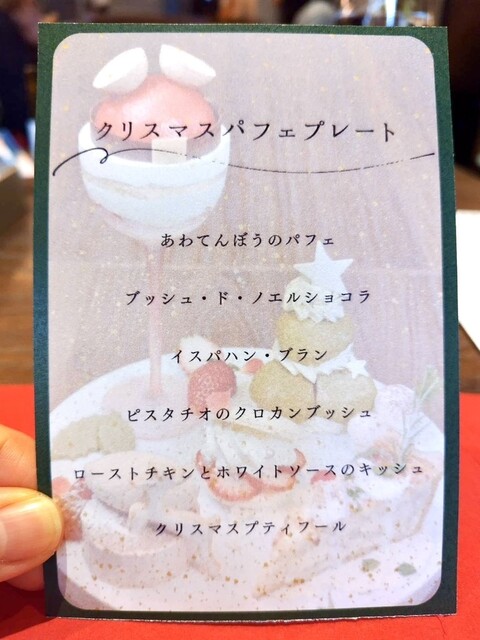 クリスマスパフェプレート
あわてんぼうのパフェ
ブッシュ・ド・ノエルショコラ
イスパハン・ブラン
ピスタチオのクロカンブッシュ
ローストチキンとホワイトソースのキッシュ
クリスマスプティフール